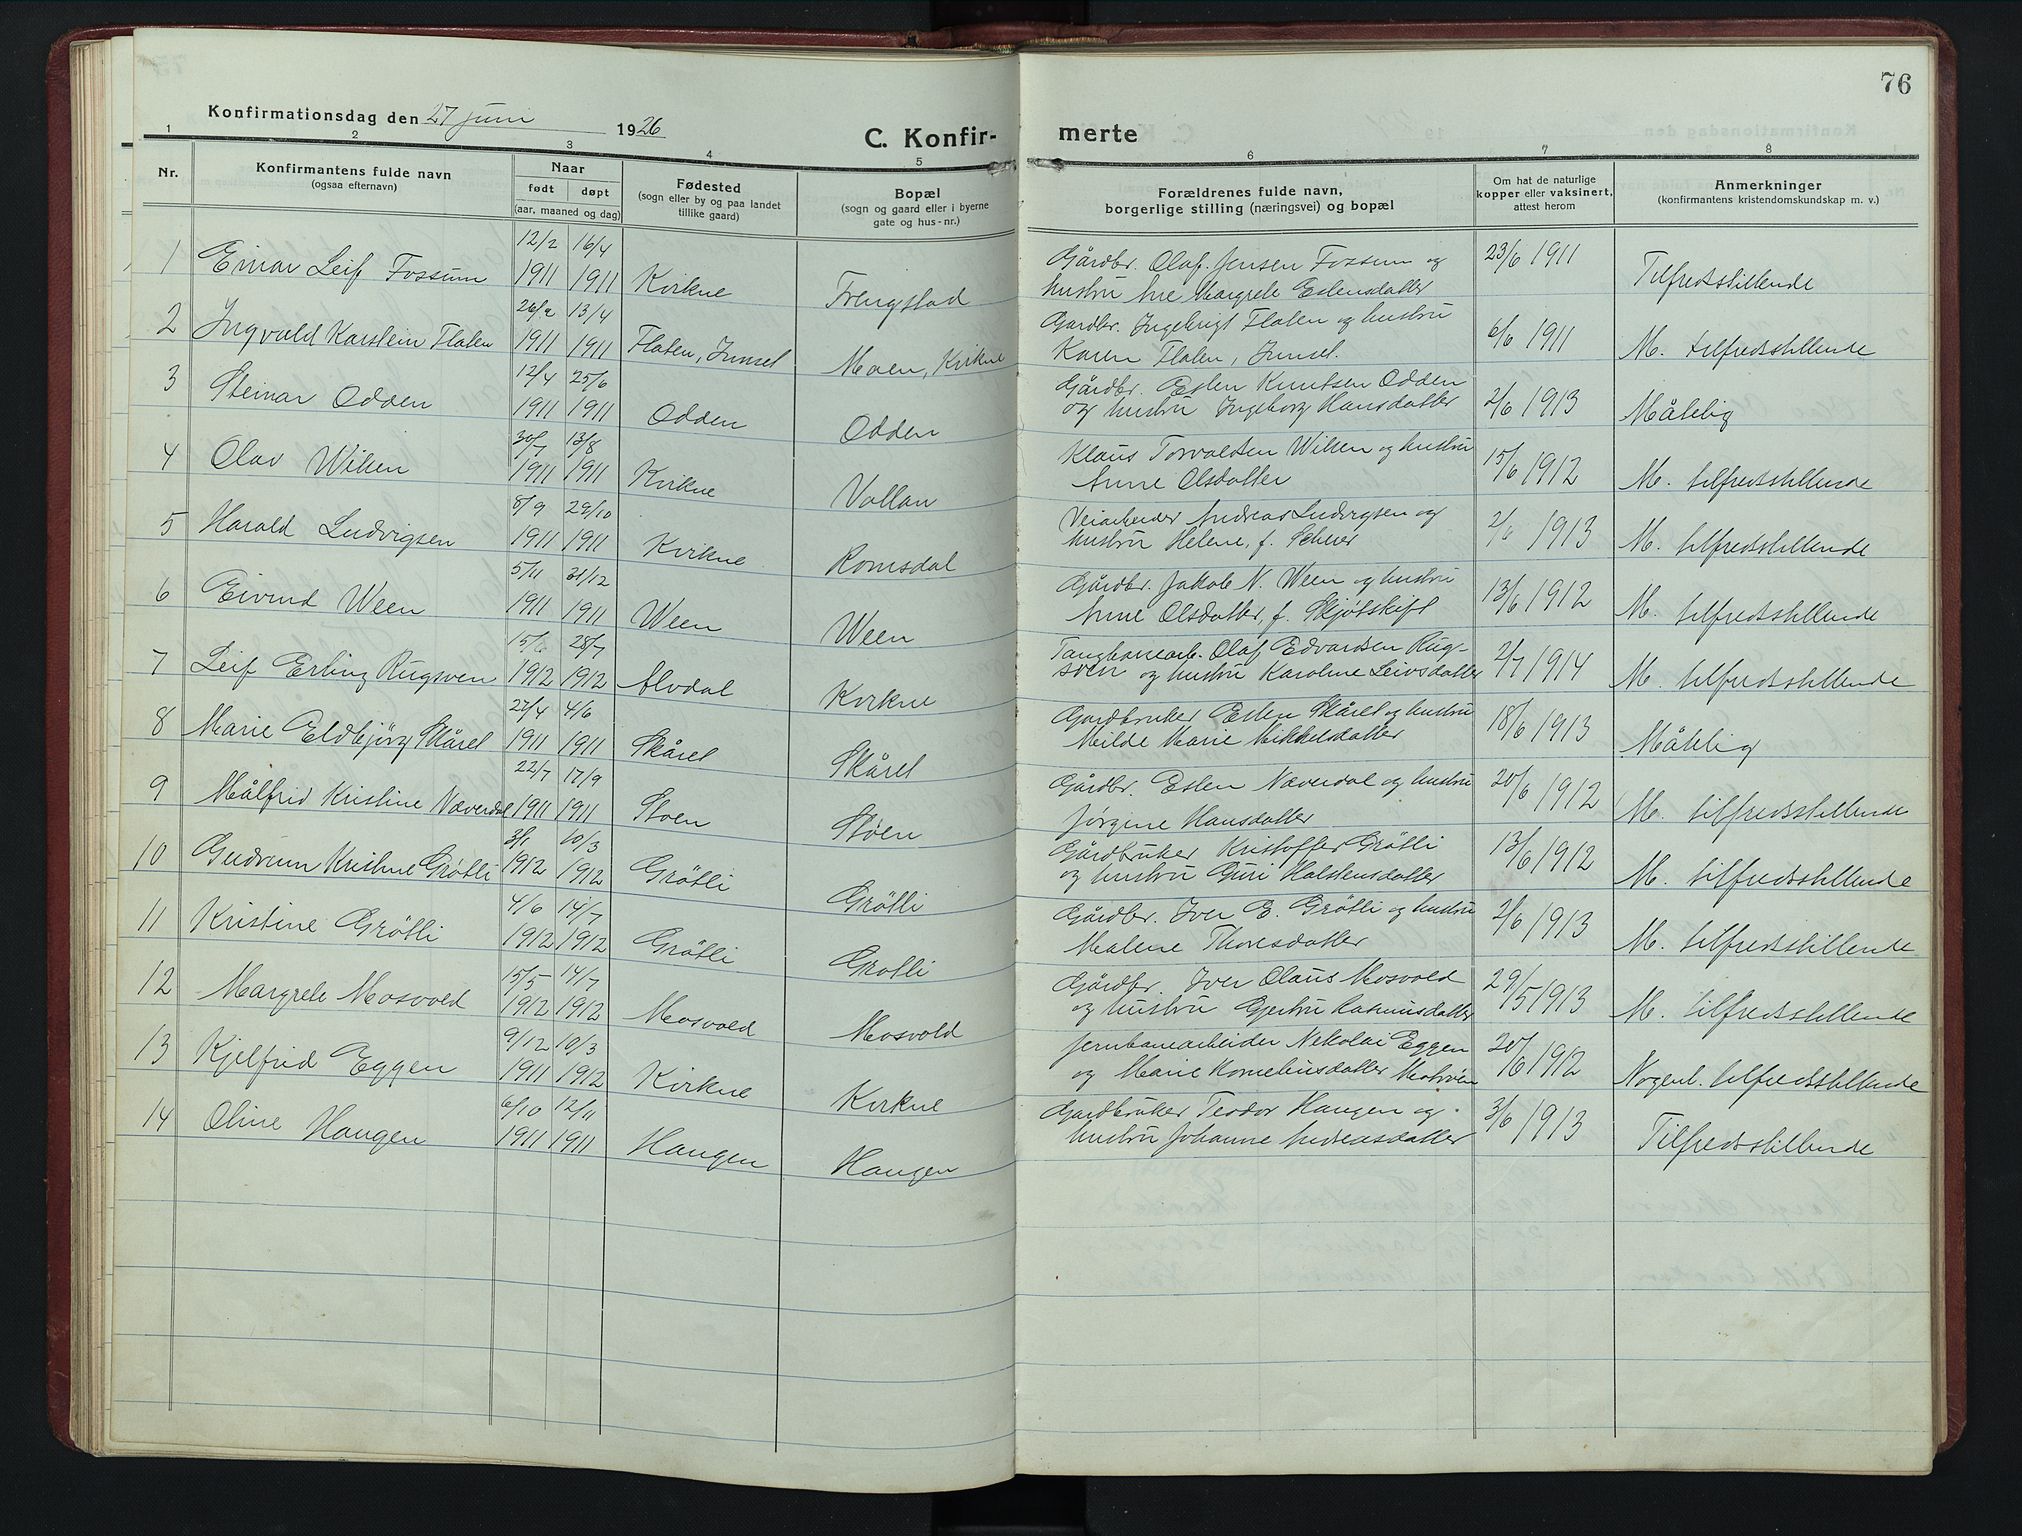 76
Konfirmationsdag den 27 juni 1926
C. Konfir-
merte
1 2 3 4 5 6 7 8
Nr.
Konfirmantens fulde navn
(ogsaa efternavn)
Naar
født døpt
(aar, maaned og dag)
Fødested
(sogn eller by og paa landet
tillike gaard)
Bopæl
(sogn og gaard eller i byerne
gate og hus-nr.)
Forældrenes fulde navn,
borgerlige stilling (næringsvei) og bopæl
Om hat de naturlige
kopper eller vaksinert,
attest herom
Anmerkninger
(konfirmantens kristendomskundskap m. v.)
12/2 16/4
1 Einar Leif Fossum 1911 1911 Kvikne Frengstad
Gårdbr. Olaf Jensen Fossum og 23/6 1911
hustru Ane Margrete Estensdatter Tilfredsstillende
26/2 13/4
2 Ingvald Karstein Flaten 1911 1911 Flaten, Innset Moen, Kvikne
Gardbr. Ingebrigt Flaten og hustru 6/6 1911
Karen Flaten, Innset. M. tilfredsstillende
12/4 25/6
3 Steinar Odden 1911 1911 Odden Odden
Gårdbr. Esten Knutsen Odden
og hustru Ingeborg Hansdatter 2/6 1913 Måtelig
30/7 13/8
4 Olav Wiken 1911 1911 Kvikne Vollan
Klaus Torvaldsen Wiken og hustru 15/6 1912
Anne Olsdatter M. tilfredsstillende
8/9 29/10
5 Harald Ludvigsen 1911 1911 Kvikne Romsdal
Veiarbeider Andreas Ludvigsen og 2/6 1913
hustru Helene, f. Scheer M. tilfredsstillende
5/11 31/12
6 Eivind Ween 1911 1911 Ween Ween
Gårdbr. Jakob N. Ween og hustru 13/6 1912
Anne Olsdatter, f. Skjøtskift M. tilfredsstillende
15/6 28/7
7 Leif Erling Rugsven 1912 1912 Alvdal Kvikne
Olaf Edvardsen Rug-
sven og hustru Karoline Leivsdatter 2/7 1914 M. tilfredsstillende
27/4 4/6
8 Marie Eldbjørg Skåret 1911 1911 Skåret Skåret
Gardbruker Esten Skåret og hustru 18/6 1913
Milde Marie Mikkelsdatter Måtelig
22/7 17/9
9 Målfrid Kristine Næverdal 1911 1911 Støen Støen
Gårdbr. Esten Næverdal og hustru 20/6 1912
Jørgine Hansdatter M. tilfredsstillende
3/1 10/3
10 Gudrun Kristine Grøtli 1912 1912 Grøtli Grøtli
Gårdbruker Kristoffer Grøtli 13/6 1912
og hustru Guri Halstensdatter M. tilfredsstillende
4/6 14/7
11 Kristine Grøtli 1912 1912 Grøtli Grøtli
Gårdbr. Iver E. Grøtli og hustru 2/6 1913
Malene Thoresdatter M. tilfredsstillende
15/5 14/7
12 Margrete Mosvold 1912 1912 Mosvold Mosvold
Gårdbr. Iver Olaus Mosvold 29/5 1913
og hustru Gjertru Rasmusdatter M. tilfredsstillende
9/12 10/3
13 Kjelfrid Eggen 1911 1912 Kvikne Kvikne
Jernbanearbeider Nikolai Eggen 20/6 1912
og Marie Korneliusdatter Nogenl. tilfredsstillende
6/10 12/11
14 Oline Haugen 1911 1911 Haugen Haugen
Gardbruker Teodor Haugen og 3/6 1913
hustru Johanne Andreasdatter Tilfredsstillende